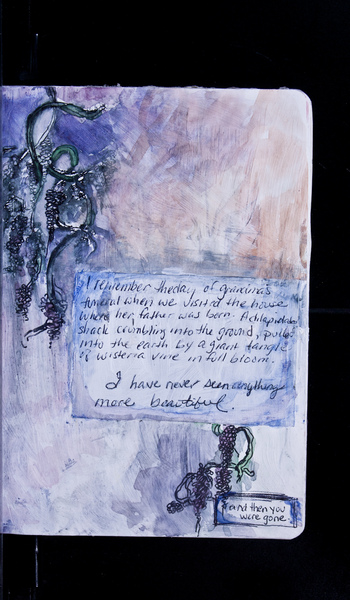 I remember the day of grandma's
funeral when we visited the house
where her father was born. A dilapidated
shack crumbling into the ground, pulled
into the earth by a giant tangle
of wisteria vine in full bloom.
I have never seen anything
more beautiful.
and then you
were gone.